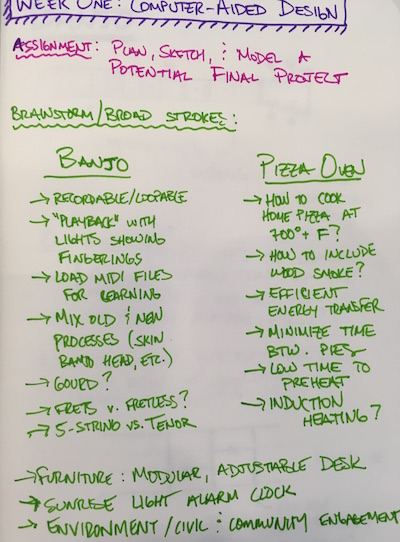 WEEK ONE: COMPUTER-AIDED DESIGN
ASSIGNMENT: PLAN, SKETCH, & MODEL A
POTENTIAL FINAL PROJECT
BRAINSTORM/BROAD STROKES:
BANJO
→ RECORDABLE/LOOPABLE
→ "PLAYBACK" WITH
LIGHTS SHOWING
FINGERINGS
→ LOAD MIDI FILES
FOR LEARNING
→ MIX OLD & NEW
PROCESSES (SKIN
BANJO HEAD, ETC.)
→ GOURD?
→ FRETS V. FRETLESS?
→ 5-STRING VS. TENOR
PIZZA OVEN
→ HOW TO COOK
HOME PIZZA AT
700°+ F?
→ HOW TO INCLUDE
WOOD SMOKE?
→ EFFICIENT
ENERGY TRANSFER
→ MINIMIZE TIME
BTW. PIES
→ LOW TIME TO
PREHEAT
→ INDUCTION
HEATING?
→ FURNITURE: MODULAR, ADJUSTABLE DESK
→ SUNRISE LIGHT ALARM CLOCK
→ ENVIRONMENT/CIVIC & COMMUNITY ENGAGEMENT